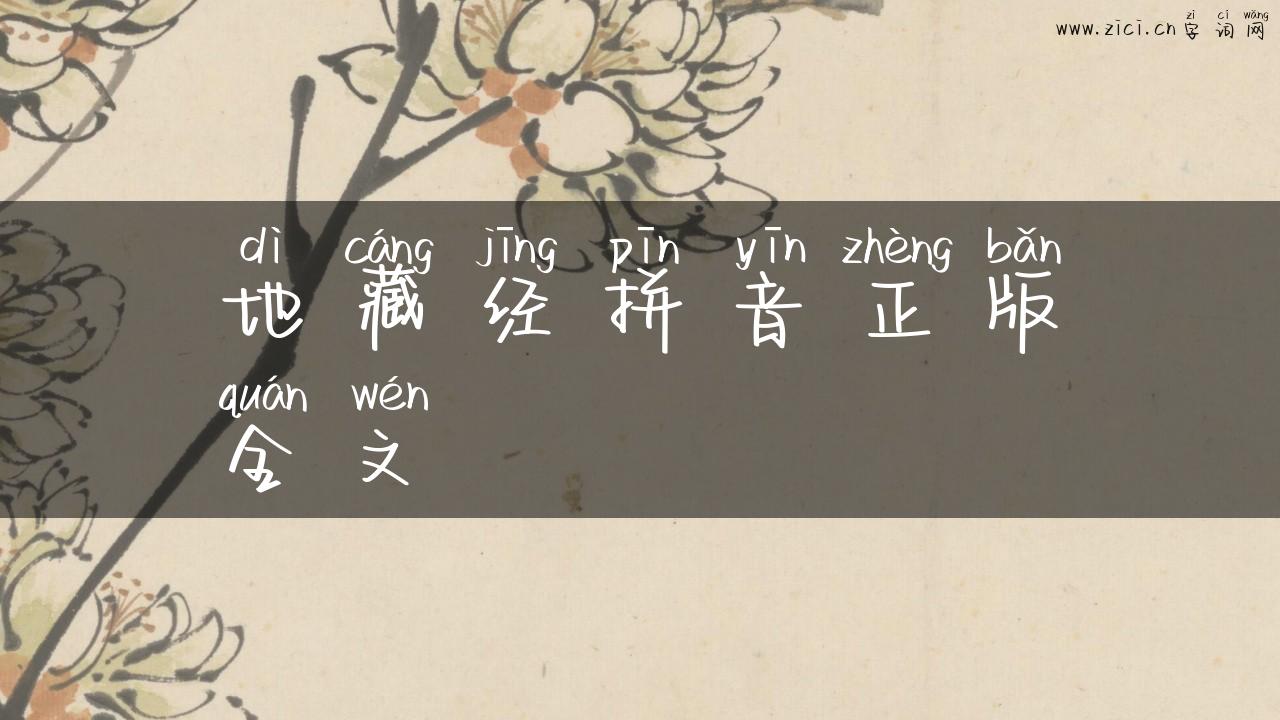 zì cí wǎng
www.zici.cn 字词网
dì cáng jīng pīn yīn zhèng bǎn
地藏经拼音正版
quán wén
全文